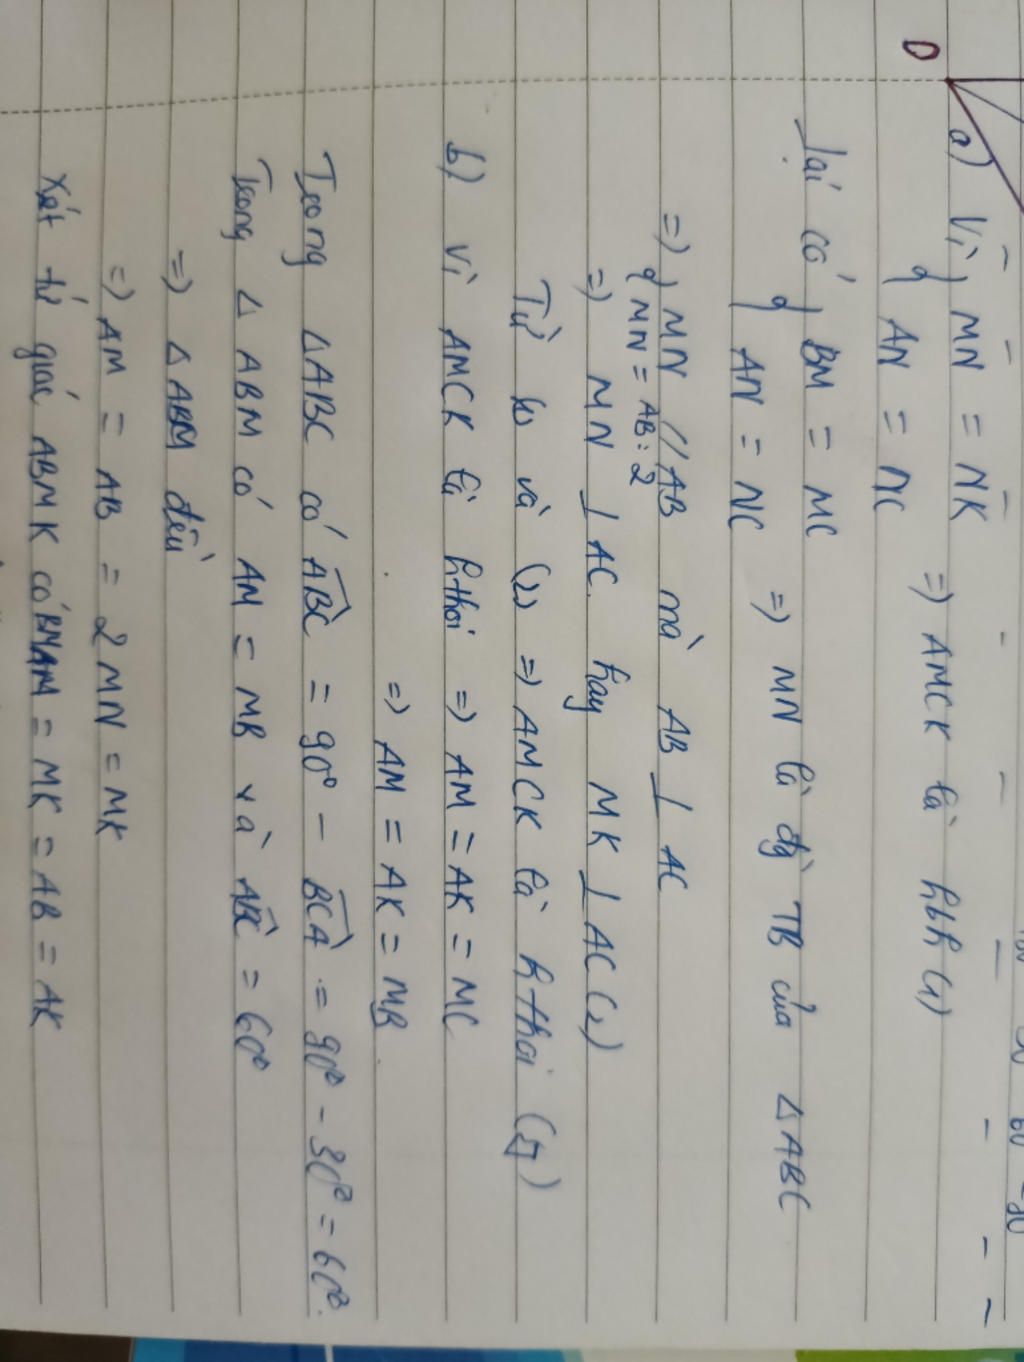 D
a) Vì MN = NK
AN = NC
=> AMCK là hbh (1)
Lại có BM = MC
AN = NC
=> MN là đg TB của Δ ABC
=> MN // AB mà AB ⊥ AC
MN = AB : 2
=> MN ⊥ AC hay MK ⊥ AC (2)
Từ (1) và (2) => AMCK là hthoi
b) Vì AMCK là hthoi => AM = AK = MC
=> AM = AK = MB
Trong ΔABC có ABC = 90° - BCA = 90° - 30° = 60°.
Trong Δ ABM có AM = MB và ABC = 60°
=> Δ ABM đều
=> AM = AB = 2 MN = MK
Xét tứ giác ABMK có BM = MK = AB = AK